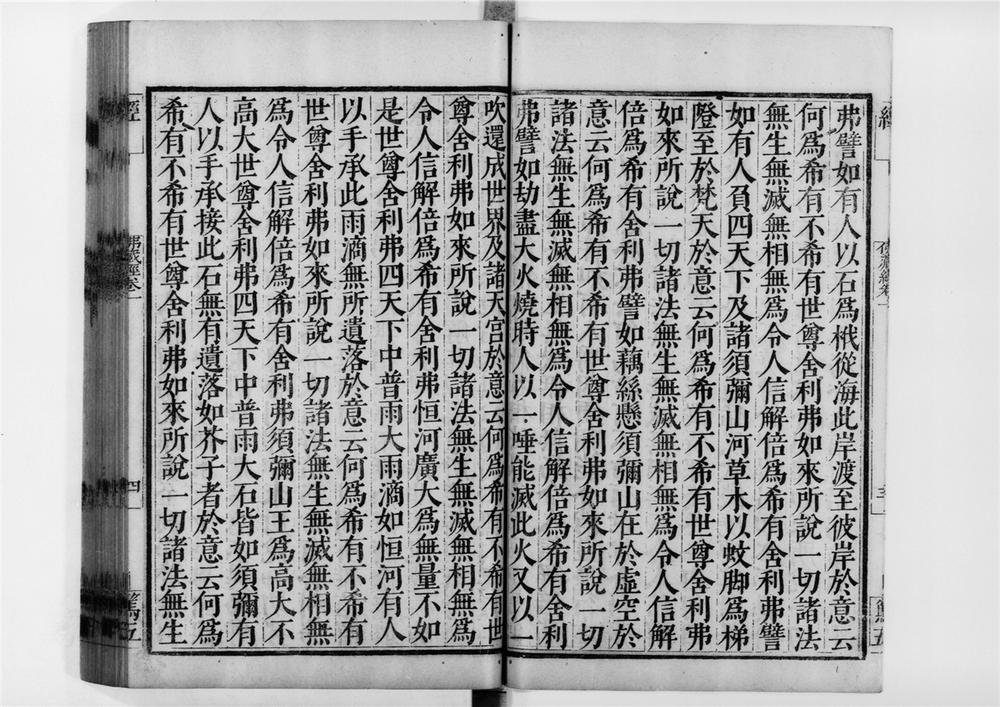 弗譬如有人以石爲栰從海此岸渡至彼岸於意云
何爲希有不希有世尊舍利弗如來所說一切諸法
無生無滅無相無爲令人信解倍爲希有舍利弗譬
如有人負四天下及諸須彌山河草木以蚊脚爲梯
隥至於梵天於意云何爲希有不希有世尊舍利弗
如來所說一切諸法無生無滅無相無爲令人信解
倍爲希有舍利弗譬如藕絲懸須彌山在於虛空於
意云何爲希有不希有世尊舍利弗如來所說一切
諸法無生無滅無相無爲令人信解倍爲希有舍利
弗譬如劫盡大火燒時人以一唾能滅此火又以一
吹還成世界及諸天宮於意云何爲希有不希有世
尊舍利弗如來所說一切諸法無生無滅無相無爲
令人信解倍爲希有舍利弗恒河廣大爲無量不如
是世尊舍利弗四天下中普雨大雨滴如恒河有人
以手承此雨滴無所遺落於意云何爲希有不希有
世尊舍利弗如來所說一切諸法無生無滅無相無
爲令人信解倍爲希有舍利弗須彌山王爲高大不
高大世尊舍利弗四天下中普雨大石皆如須彌有
人以手承接此石無有遺落如芥子者於意云何爲
希有不希有世尊舍利弗如來所說一切諸法無生
經
佛藏經卷一
四
篤五